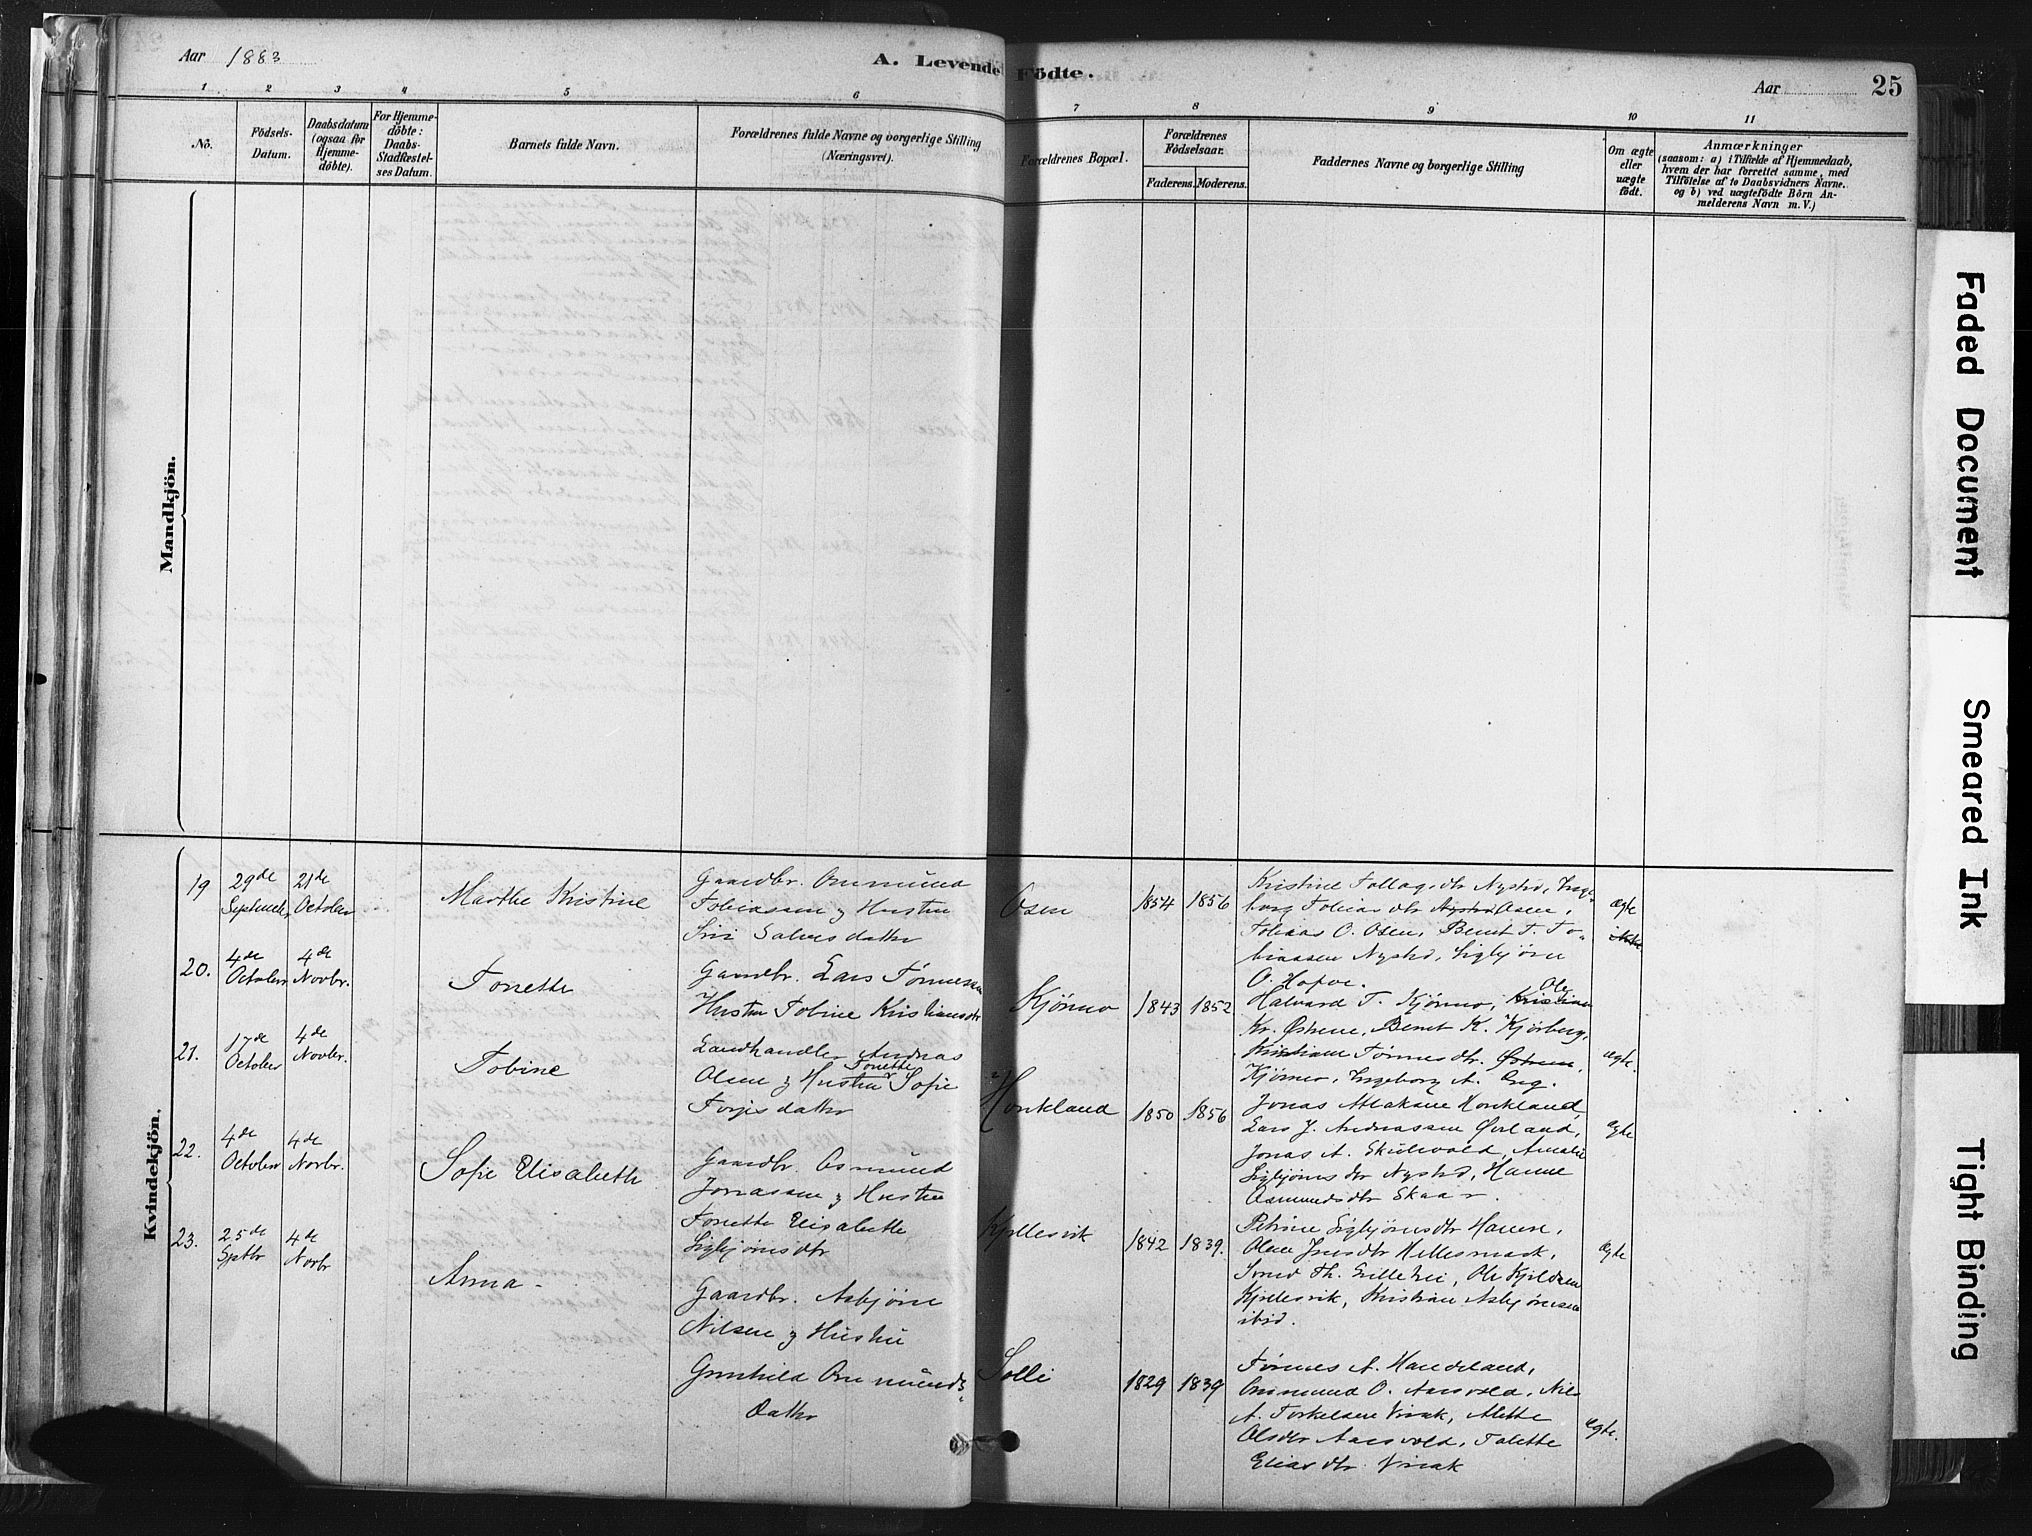 Aar 1883
A. Levende Födte.
Aar
25
1 2 3 4 5 6 7 8 9 10 11
No.
Födsels-
Datum.
Daabsdatum
(ogsaa for
Hjemme-
döbte).
For Hjemme-
döbte:
Daabs-
Stadfæstel-
ses Datum.
Barnets fulde Navn.
Forældrenes fulde Navne og borgerlige Stilling
(Næringsvei).
Forældrenes Bopæl.
Forældrenes
Födselsaar.
Faderens. Moderens.
Faddernes Navne og borgerlige Stilling
Om ægte
eller
uægte
födt.
Anmærkninger
(saasom: a) i Tilfælde af Hjemmedaab,
hvem der har forrettet samme, med
Tilföielse af to Daabsvidners Navne.
og b) ved uægtefödte Börn An-
melderens Navn m. V.)
Mandkjön.
Kvindekjön.
19
29de
21de
October
Marthe Kristine
Gaardbr. Ommund
Tobiassen & Hustru
Siri Salvesdatter
Osen
1854 1856
Kristine
Nysted, Inge-
borg Tobiasdtr Osen,
Tobias O. Osen, Bernt T. To-
biassen Nysted, Sigbjørn
O. Hofve.
ægte
20.
4de
October
4de
Novbr.
Tonette
Gaardbr. Lars Tønnessen
Hustru Tobine Kristiansdtr
Kjørmo
1843 1852
Halvard T. Kjørmo, Ole
Kr. Østrem, Bernt K. Kjørberg,
Tønnesdtr.
Kjørmo, Ingeborg A. Eeg.
ægte
21.
17de
October
4de
Novbr.
Tobine
Landhandler Andreas
Olsen & Hustru Tonette Sofie
Torjesdatter
Honkland
1850 1856
Jonas Honkland,
Lars J. Andreassen Øvland,
Jonas A. Amalie
Sigbjørnsdtr Nysted, Hanne
Osmundsdtr Skaar.
ægte
22.
4de
October
4de
Novbr.
Sofie Elisabeth
Gaardbr. Osmund
Jonassen & Hustru
Tonette Elisabette
Sigbjørnsdtr
Kjellesvik
1842 1839.
Petrine Sigbjørnsdtr
Jensdtr Hellesmark,
Th. Ole Kjeldsen
Kjellesvik, Kristian Asbjørnsen
ibid.
ægte
23.
25de
Septbr
4de
Novbr
Anna
Gaardbr. Asbjørn
Nilsen & Hustru
Gunhild Ommunds-
datter
Solli
1829 1839
Tønnes A. Handeland,
Ommund O. Aarsvold, Nils
A. Torkelsen Virak, Alette
Olsdtr Aarsvold, Talette
Eliasdtr. Virak
ægte.
Faded Document
Smeared Ink
Tight Binding